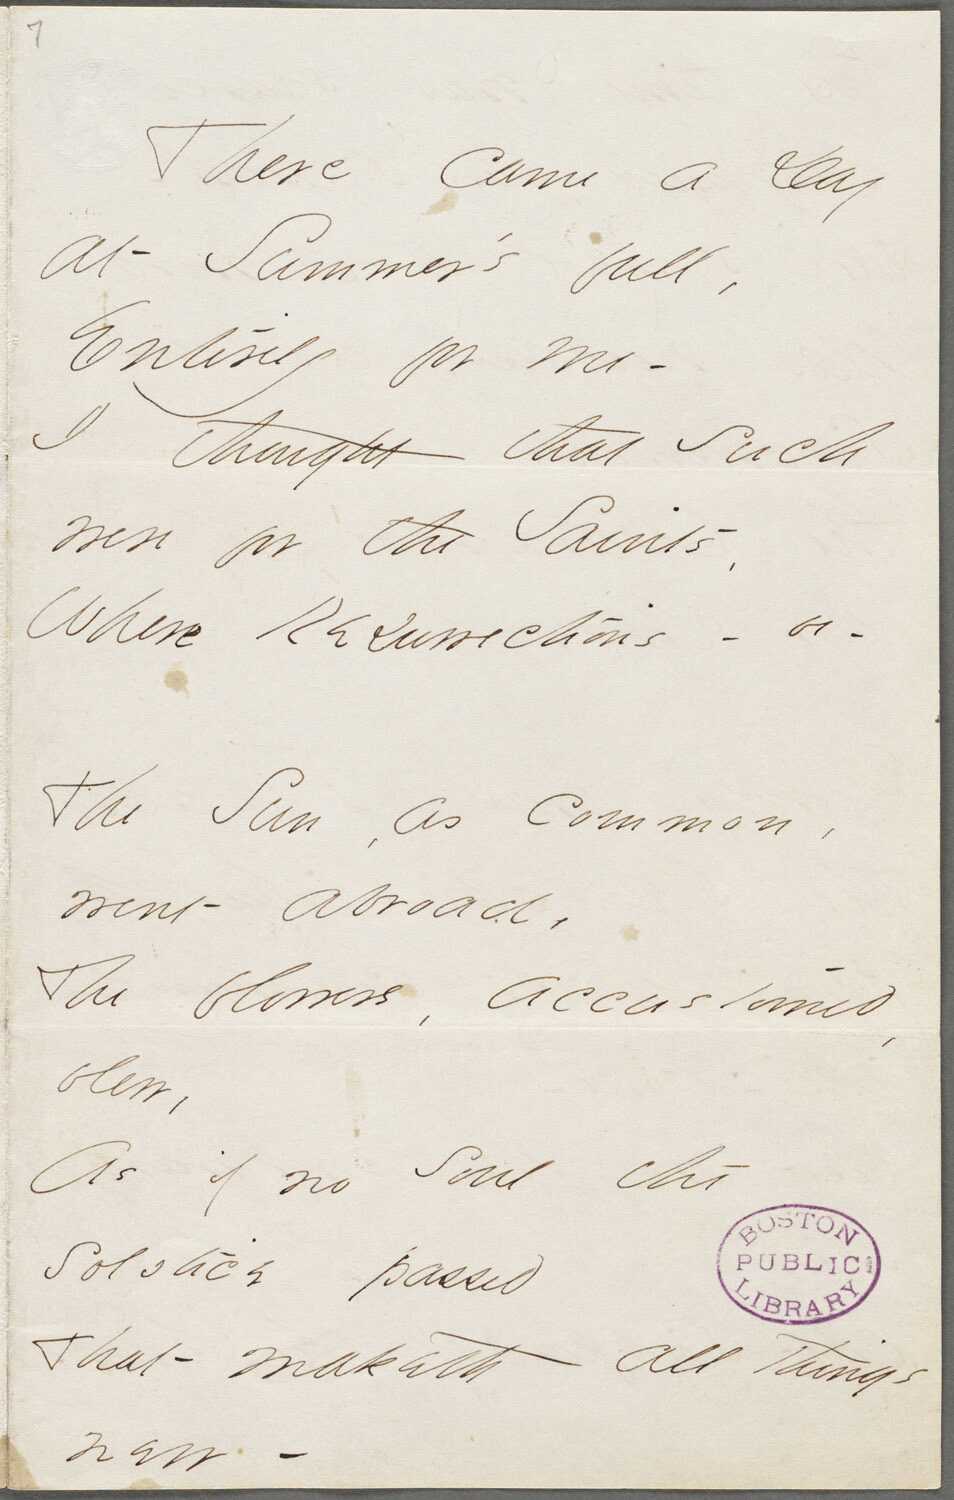 7
There came a Day
at Summer's full,
Entirely for me -
I thought that such
were for the Saints,
Where Resurrections - be -
The Sun, as common,
went abroad,
The flowers, accustomed,
blew,
As if no Soul the
Solstice passed
That maketh all things
new -
BOSTON
PUBLIC
LIBRARY